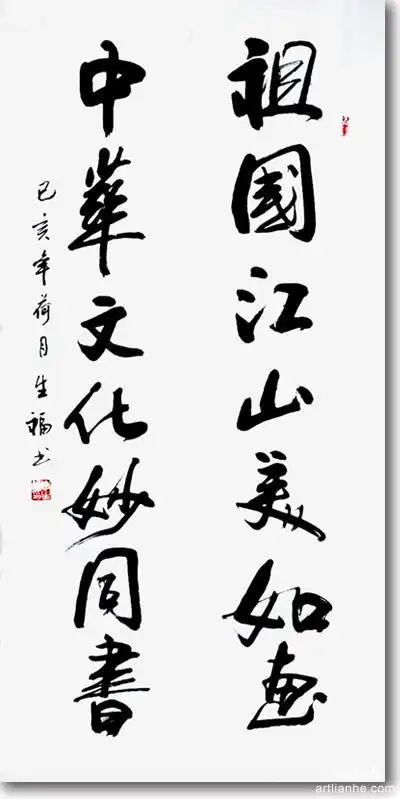 祖國江山美如画
中華文化妙同書
己亥年荷月生福书
artlianhe.com